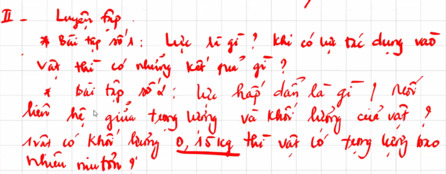 II - Luyện tập
* Bài tập số 1: Lực là gì? Khi có lực tác dụng vào
vật thì có những kết quả gì?
* Bài tập số 2: lực hấp dẫn là gì? Mối
liên hệ giữa trọng lượng và khối lượng của vật?
1 vật có khối lượng 0,15kg thì vật có trọng lượng bao
nhiêu niutơn?